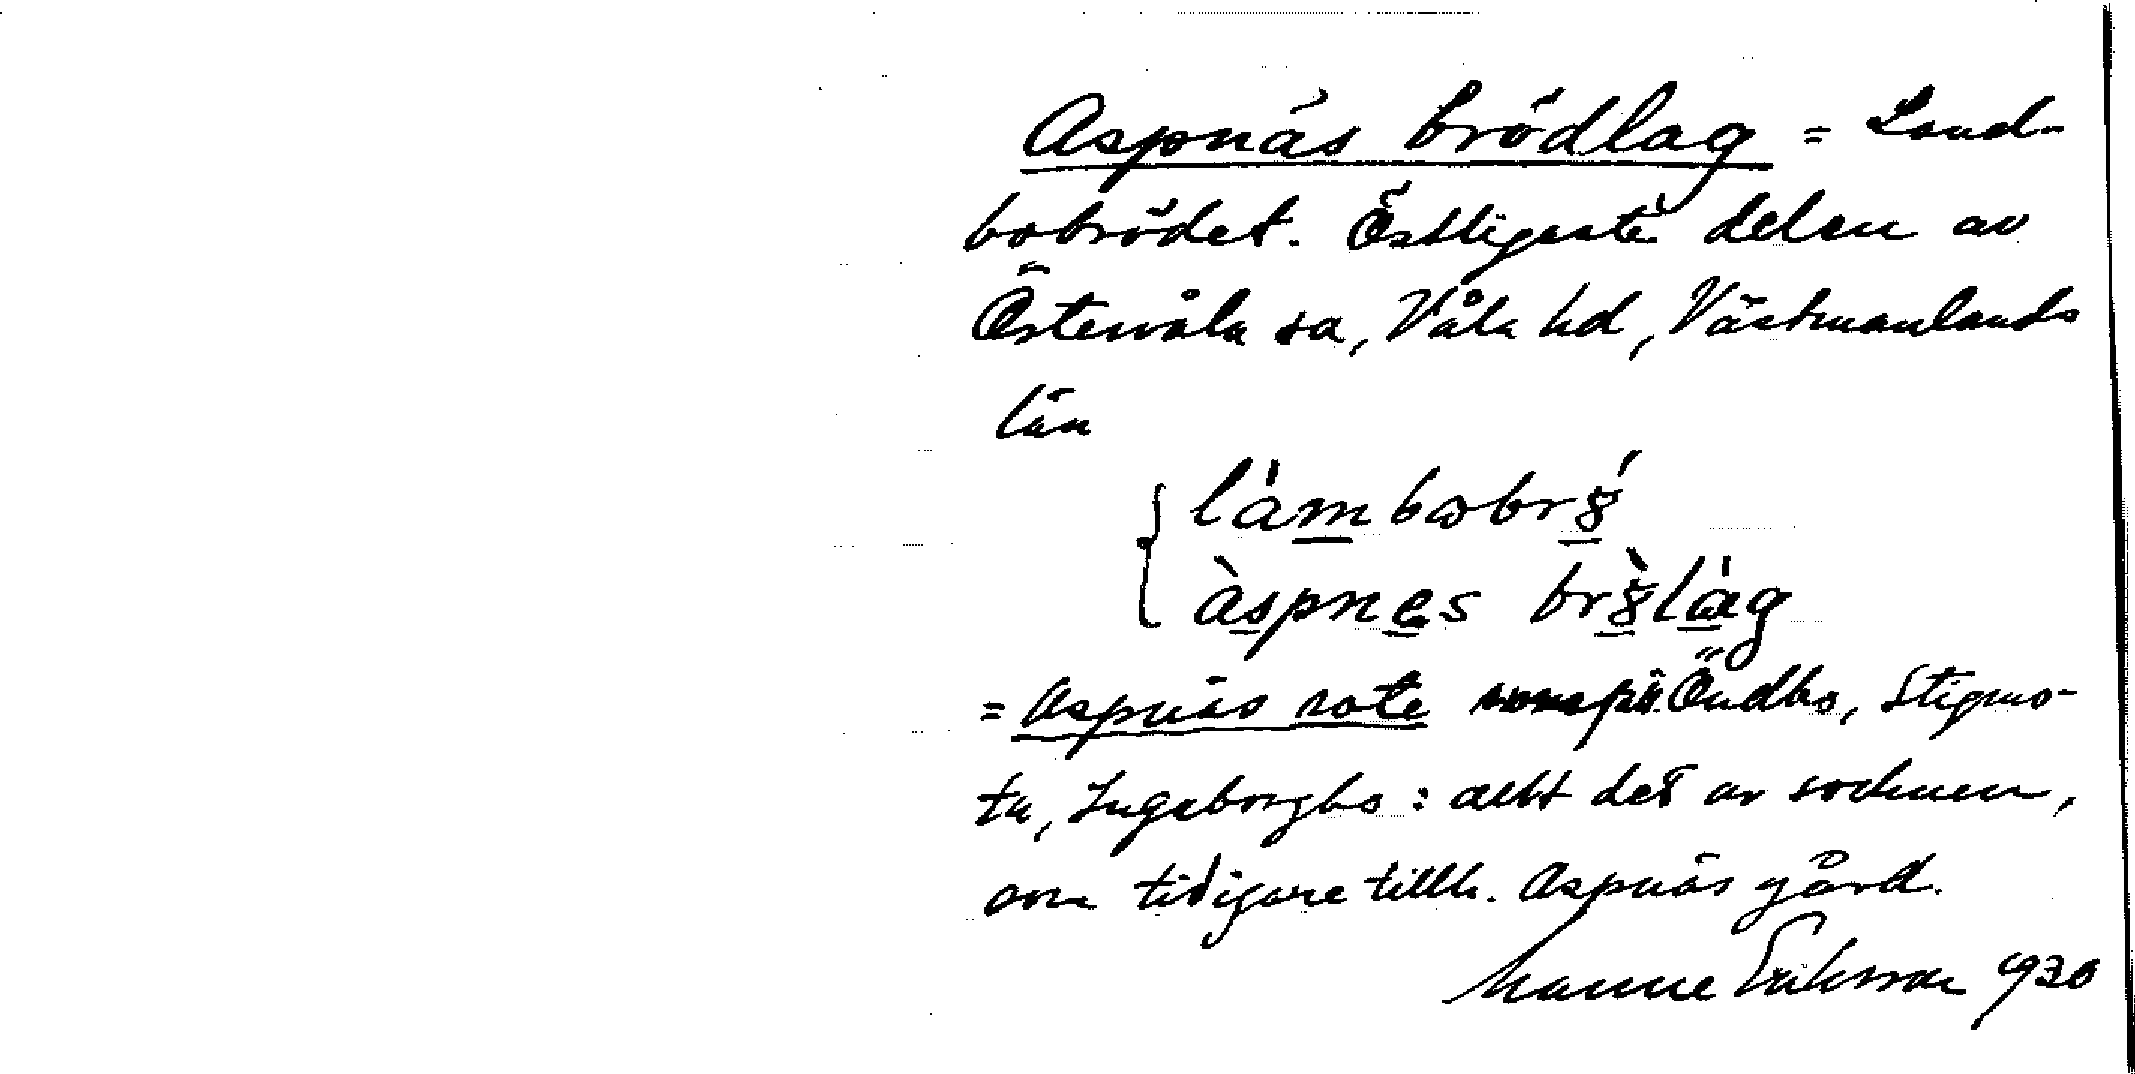 Aspnäs brödlag = Land-
bobrödet. Östligaste delen av
Östervåla sn, Våla hd, Västmanlands
län
làmbobr
àspnes br lag
= Aspnäs rote Öndbo, Stigmo-
ta, Ingeborgbo: allt det av socknen,
som tidigare tillh. Aspnäs gård.
Manne Eriksson 1930